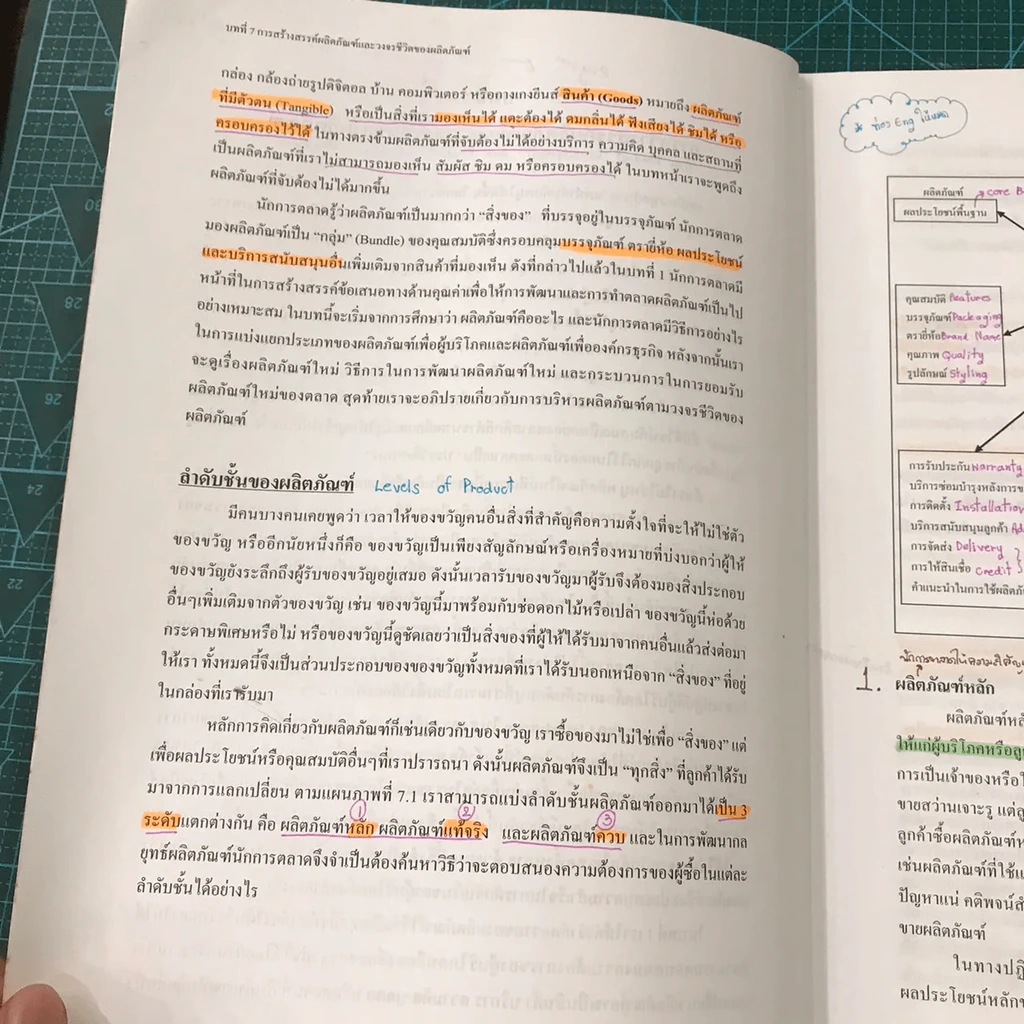 บทที่ 7 การสร้างสรรค์ผลิตภัณฑ์และวงจรชีวิตของผลิตภัณฑ์
กล่อง กล้องถ่ายรูปดิจิตอล บ้าน คอมพิวเตอร์ หรือกางเกงยีนส์ สินค้า (Goods) หมายถึง ผลิตภัณฑ์
ที่มีตัวตน (Tangible) หรือเป็นสิ่งที่เรามองเห็นได้ แตะต้องได้ ดมกลิ่นได้ ฟังเสียงได้ ชิมได้ หรือ
ครอบครองไว้ได้ ในทางตรงข้ามผลิตภัณฑ์ที่จับต้องไม่ได้อย่างบริการ ความคิด บุคคล และสถานที่
เป็นผลิตภัณฑ์ที่เราไม่สามารถมองเห็น สัมผัส ชิม ดม หรือครอบครองได้ ในบทหน้าเราจะพูดถึง
ผลิตภัณฑ์ที่จับต้องไม่ได้มากขึ้น
นักการตลาดรู้ว่าผลิตภัณฑ์เป็นมากกว่า “สิ่งของ” ที่บรรจุอยู่ในบรรจุภัณฑ์ นักการตลาด
มองผลิตภัณฑ์เป็น “กลุ่ม” (Bundle) ของคุณสมบัติซึ่งครอบคลุมบรรจุภัณฑ์ ตรายี่ห้อ ผลประโยชน์
และบริการสนับสนุนอื่นเพิ่มเติมจากสินค้าที่มองเห็น ดังที่กล่าวไปแล้วในบทที่ 1 นักการตลาดมี
หน้าที่ในการสร้างสรรค์ข้อเสนอทางด้านคุณค่าเพื่อให้การพัฒนาและการทำตลาดผลิตภัณฑ์เป็นไป
อย่างเหมาะสม ในบทนี้จะเริ่มจากการศึกษาว่า ผลิตภัณฑ์คืออะไร และนักการตลาดมีวิธีการอย่างไร
ในการแบ่งแยกประเภทของผลิตภัณฑ์เพื่อผู้บริโภคและผลิตภัณฑ์เพื่อองค์กรธุรกิจ หลังจากนั้นเรา
จะดูเรื่องผลิตภัณฑ์ใหม่ วิธีการในการพัฒนาผลิตภัณฑ์ใหม่ และกระบวนการในการยอมรับ
ผลิตภัณฑ์ใหม่ของตลาด สุดท้ายเราจะอภิปรายเกี่ยวกับการบริหารผลิตภัณฑ์ตามวงจรชีวิตของ
ผลิตภัณฑ์
ลำดับชั้นของผลิตภัณฑ์ Levels of Product
มีคนบางคนเคยพูดว่า เวลาให้ของขวัญคนอื่นสิ่งที่สำคัญคือความตั้งใจที่จะให้ไม่ใช่ตัว
ของขวัญ หรืออีกนัยหนึ่งก็คือ ของขวัญเป็นเพียงสัญลักษณ์หรือเครื่องหมายที่บ่งบอกว่าผู้ให้
ของขวัญยังระลึกถึงผู้รับของขวัญอยู่เสมอ ดังนั้นเวลารับของขวัญมาผู้รับจึงต้องมองสิ่งประกอบ
อื่นๆเพิ่มเติมจากตัวของขวัญ เช่น ของขวัญนี้มาพร้อมกับช่อดอกไม้หรือเปล่า ของขวัญนี้ห่อด้วย
กระดาษพิเศษหรือไม่ หรือของขวัญนี้ดูชัดเลยว่าเป็นสิ่งของที่ผู้ให้ได้รับมาจากคนอื่นแล้วส่งต่อมา
ให้เรา ทั้งหมดนี้จึงเป็นส่วนประกอบของของขวัญทั้งหมดที่เราได้รับนอกเหนือจาก “สิ่งของ” ที่อยู่
ในกล่องที่เรารับมา
หลักการคิดเกี่ยวกับผลิตภัณฑ์ก็เช่นเดียวกับของขวัญ เราซื้อของมาไม่ใช่เพื่อ “สิ่งของ” แต่
เพื่อผลประโยชน์หรือคุณสมบัติอื่นๆที่เราปรารถนา ดังนั้นผลิตภัณฑ์จึงเป็น “ทุกสิ่ง” ที่ลูกค้าได้รับ
มาจากการแลกเปลี่ยน ตามแผนภาพที่ 7.1 เราสามารถแบ่งลำดับชั้นผลิตภัณฑ์ออกมาได้เป็น 3
1 2 3
ระดับแตกต่างกัน คือ ผลิตภัณฑ์หลัก ผลิตภัณฑ์แท้จริง และผลิตภัณฑ์ควบ และในการพัฒนากล
ยุทธ์ผลิตภัณฑ์นักการตลาดจึงจำเป็นต้องค้นหาวิธีว่าจะตอบสนองความต้องการของผู้ซื้อในแต่ละ
ลำดับชั้นได้อย่างไร
ท่อง Eng
ผลิตภัณฑ์ core B
ผลประโยชน์พื้นฐาน
คุณสมบัติ Features
บรรจุภัณฑ์ Packaging
ตรายี่ห้อ Brand Name
คุณภาพ Quality
รูปลักษณ์ Styling
การรับประกัน Warranty
บริการซ่อมบำรุงหลังการข
การติดตั้ง Installation
บริการสนับสนุนลูกค้า
การจัดส่ง Delivery
การให้สินเชื่อ Credit
คำแนะนำในการใช้ผลิตภั
1. ผลิตภัณฑ์หลัก
ผลิตภัณฑ์หลั
ให้แก่ผู้บริโภคหรือลูก
การเป็นเจ้าของหรือใ
ขายสว่านเจาะรู แต่ลู
ลูกค้าซื้อผลิตภัณฑ์ห
เช่นผลิตภัณฑ์ที่ใช้แ
ปัญหาแน่ คติพจน์สำ
ขายผลิตภัณฑ์
ในทางปฏิ
ผลประโยชน์หลักข
22
24
26
28
30